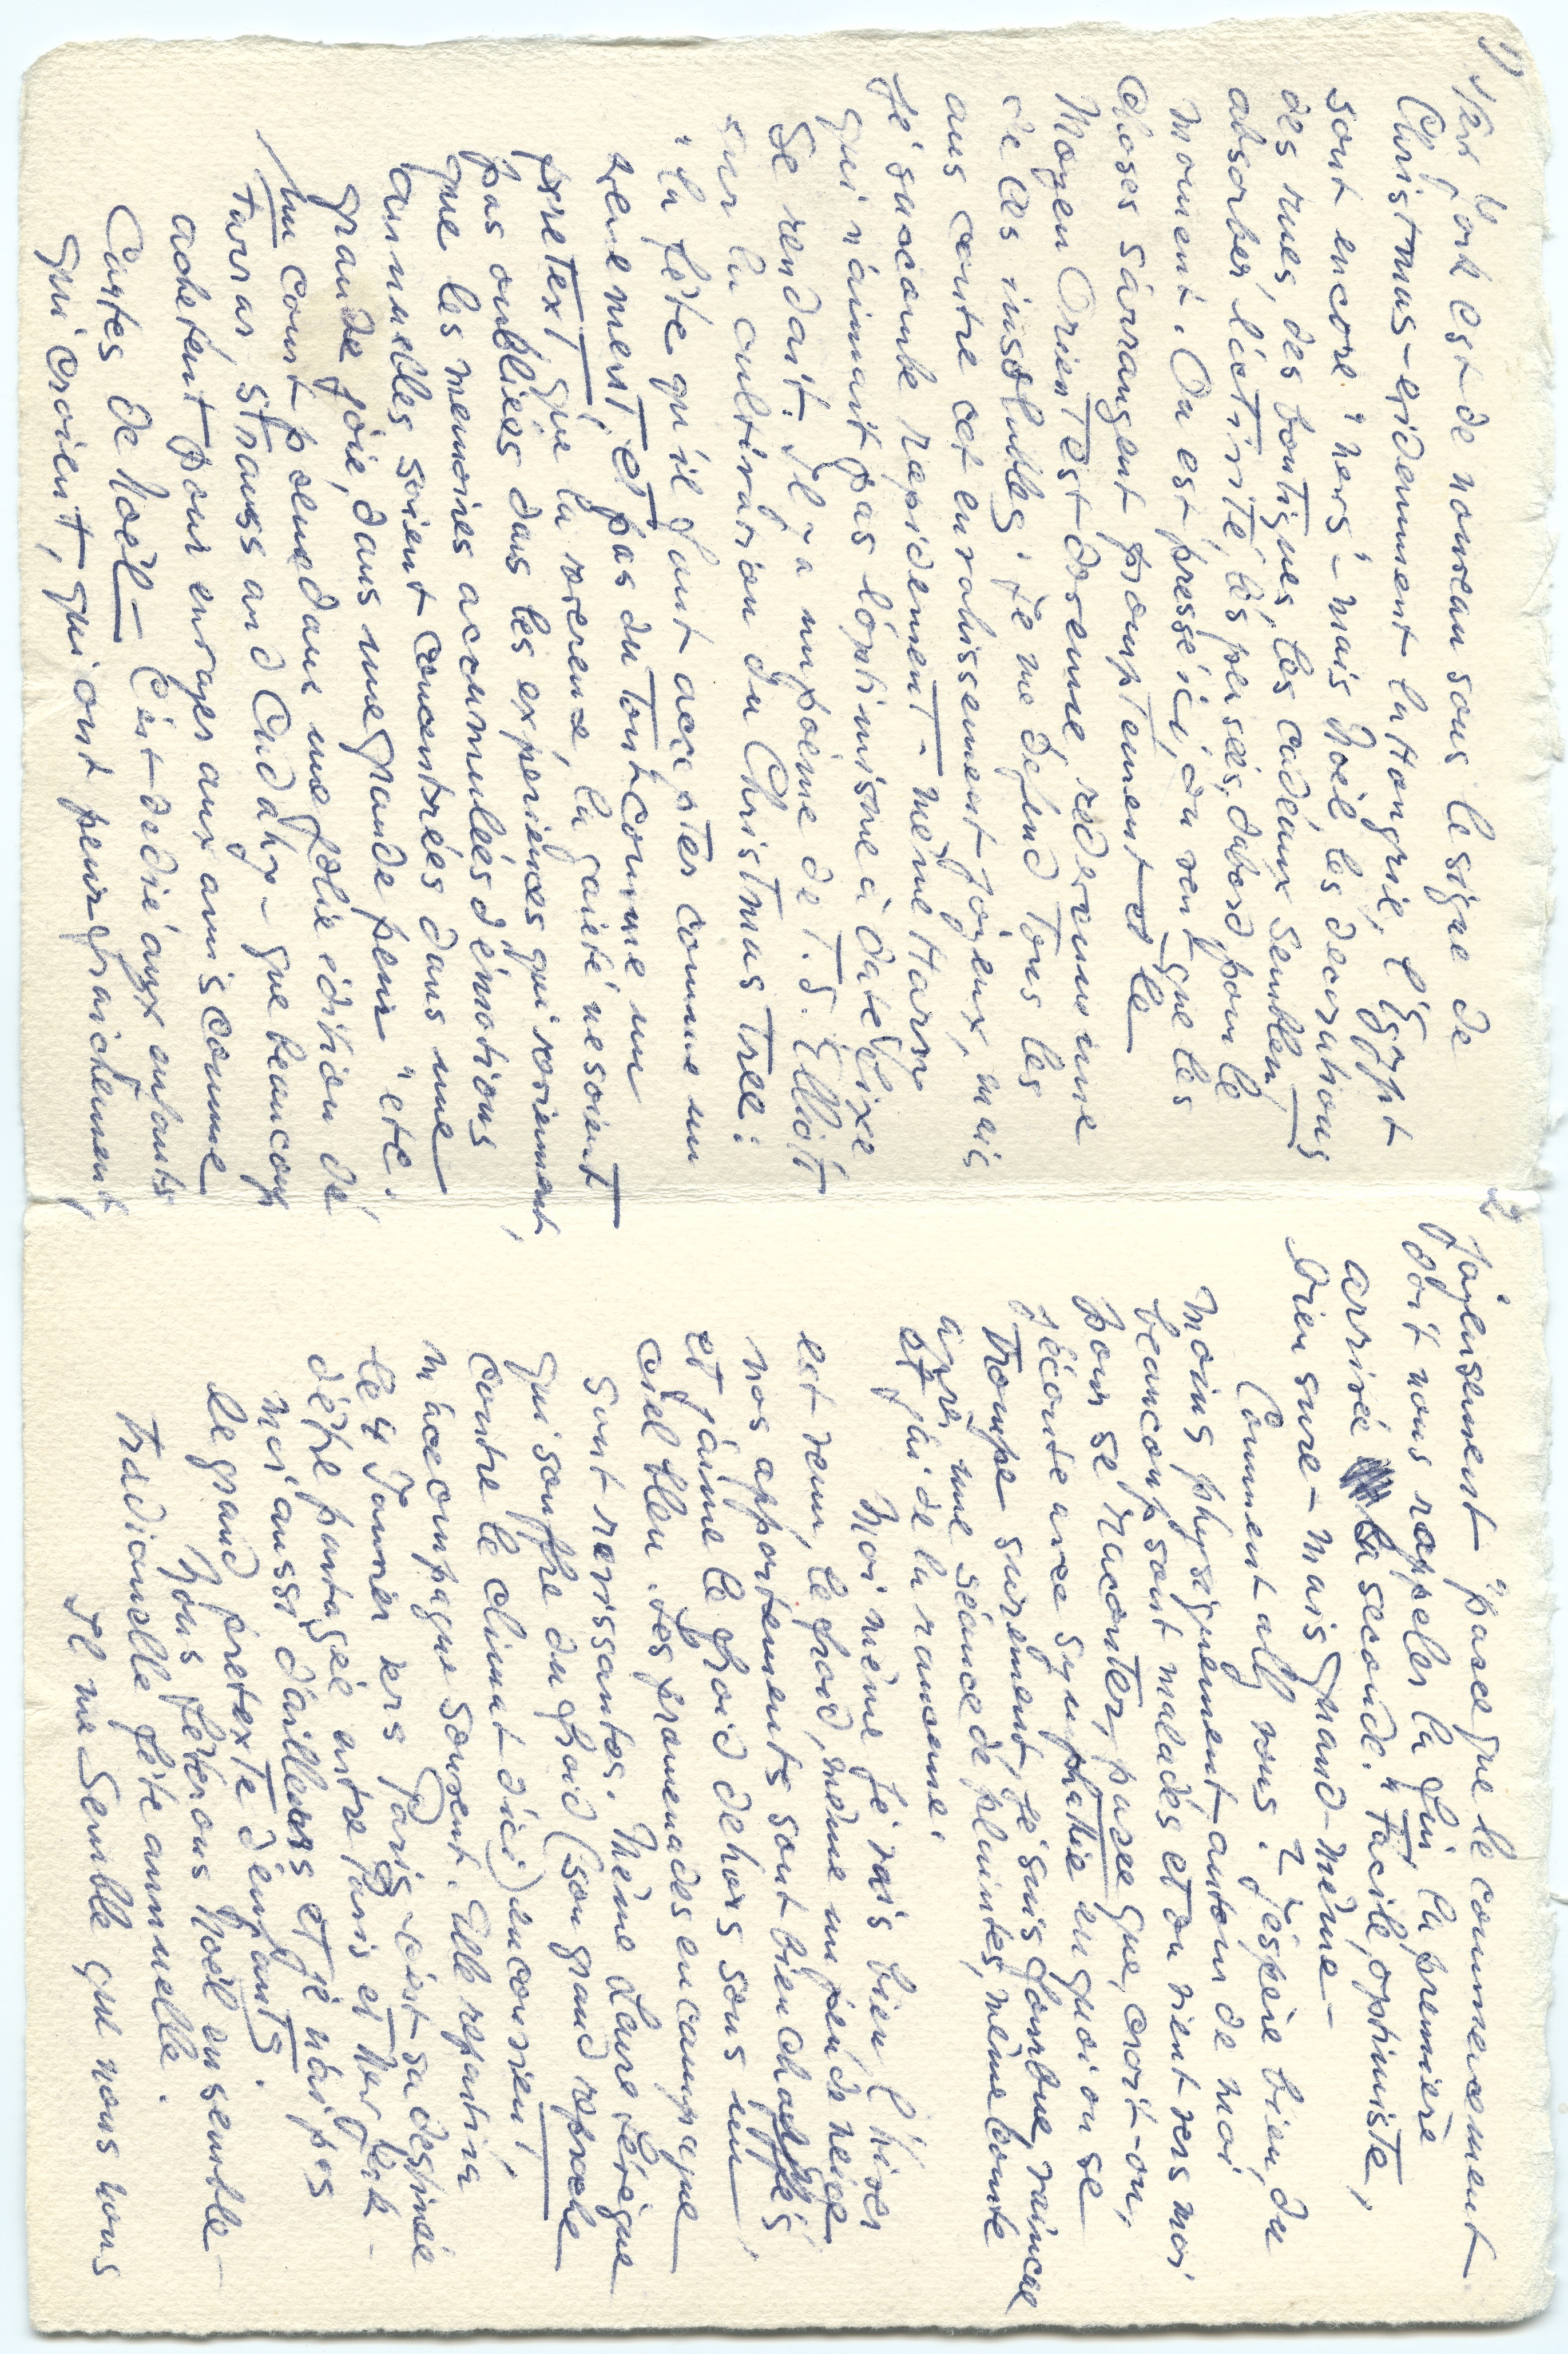 1)
New York est de nouveau sous le signe de
Christmas - evidemment la Hongrie, l'Egypt
sont encore "news" - mais Noël, les decorations
des rues, des boutiques, les cadeaux semblent
absorber l'activité, les pensées, dabord pour le
moment. On est pressé ici, on veut que les
choses s'arrangent promptement et le
Moyen Orient est devenue, redevenu une
de ces insolubles. Je me defend tous les
ans contre cet envahissement joyeux, mais
je succombe rapidement - même Harry
qui n'aimait pas l'optimisme à date fixe
se rendait. Il y a un poème de T.S. Elliot
sur la cultivation du Christmas tree:
"la fête qu'il faut accepter comme un
evenement et pas du tout comme un
pretext; que la reverence, la gaieté ne soient
pas oubliées dans les experiences qui reviennent,
que les memoires accumulées d'émotions
annuelles soient concentrées dans une
grande joie, dans une grande peur" etc.
Un court poeme dans une jolie edition de
Farrar, Strauss and Cudahy - que beaucoup
achetent pour envoyer aux amis comme
Cartes de Noël - C'est dedié aux enfants
qui croient, qui ont peur fraichement,
2)
Joyeusement "parce que le commencement
doit nous rappeler la fin, la première
arrivée la seconde." Facile, optimiste,
bien sure - mais quand-même -
Comment allez vous? J'espère bien, du
moins physiquement autour de moi
beaucoup sont malades et on vient vers moi
pour se raconter, parce que, croit-on,
j'écoute avec sympathie en quoi on se
trompe surement, je suis fourbue, vaincue
après une séance de plaintes, même courte
et j'ai de la rancune.
Moi même je vais bien l'hiver
est venu, le froid, même un peu de neige
nos appartements sont bien chauffés,
et j'aime le froid dehors sous un
ciel bleu. Les promenades en campagne
sont ravissantes. Même Laure Lévêque
qui souffre du froid (son grand reproche
contre le climat d'ici) en convient,
m'accompagne souvent. Elle repartira
le 4 Janvier vers Paris - c'est sa destinée
d'être partagée entre Paris et New York -
moi aussi d'ailleurs et je n'ai pas
le grand pretexte d'enfants.
Nous fêterons Noël ensemble -
Tradionelle fête annuelle.
Il me semble que nous vous